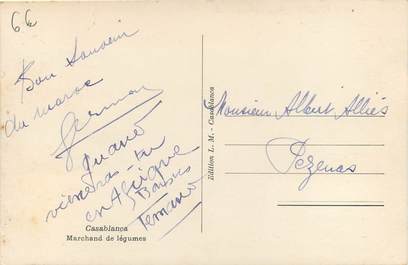 6€
Bon Souvenir
du maroc
Germon
quand
viendras tu
en Afrique
Baisers
Casablanca
Marchand de légumes
Edition L. M. - Casablanca
Monsieur Albert Alliés
Pézenas